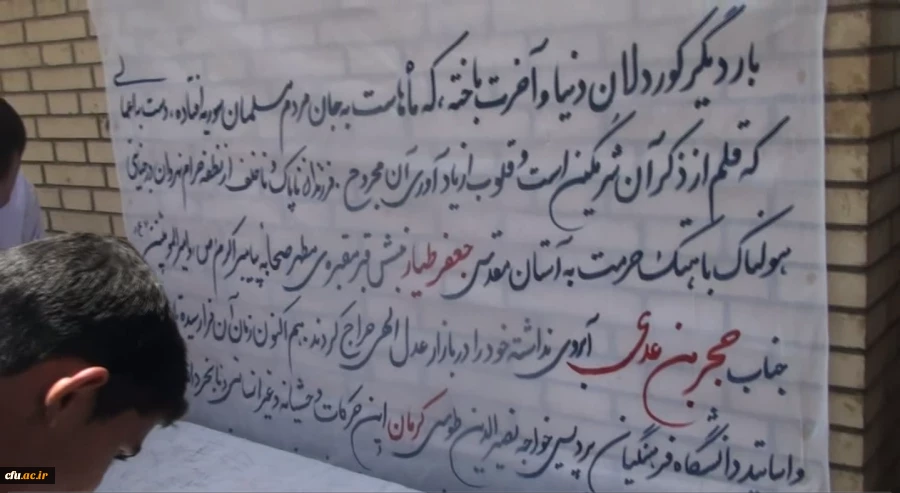 بار دیگر کوردلان دنیا و آخرت باخته، که ماهاست به جان مردم مسلمان سوریه افتاده، دست به اعمالی
که قلم از ذکر آن شرمگین است و قلوب از یادآوری آن مجروح. فرزندان ناپاک و ناخلف از نطفه حرام نهروان در جنایتی
هولناک با هتک حرمت به آستان مقدس جعفر طیار و نبش قبر مقبره‌ی مطهر صحابه پیامبر اکرم ص و امیرالمومنین
جناب حجر بن عدی آبروی نداشته خود را در بازار عدل الهی حراج کردند. هم اکنون زمان آن فرا رسیده
و اساتید دانشگاه فرهنگیان پردیس خواجه نصیرالدین طوسی کرمان این حرکات وحشیانه و غیر انسانی و نابخردانه
cfu.ac.ir